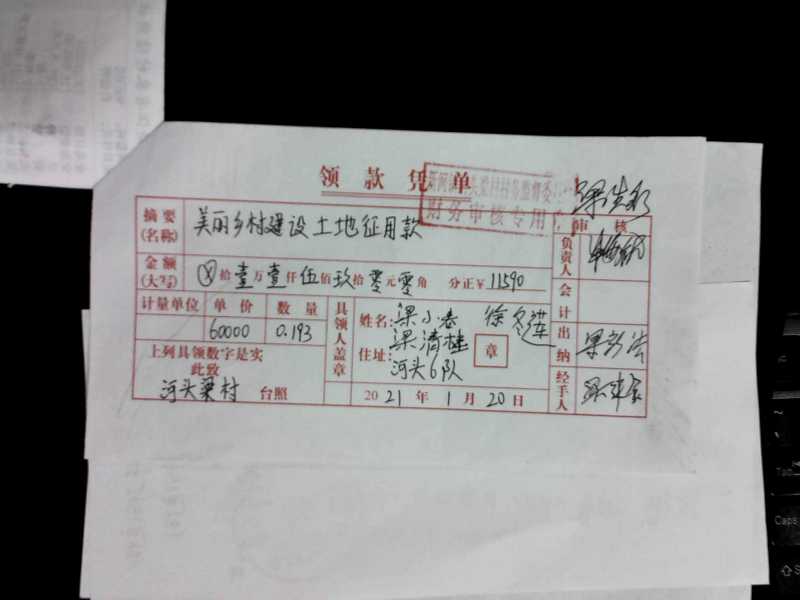 领款凭单
财务审核专用
摘要(名称) 美丽乡村建设土地征用款
审核
负责人
金额(大写) ⊗拾壹万壹仟伍佰玖拾零元零角 分正¥11590
会计
计量单位 单价 数量
60000 0.193
具领人盖章
姓名: 梁小春 徐冬莲
梁清桂
住址: 河头6队
章
出纳
上列具领数字是实
此致
河头梁村 台照
2021年1月20日
经手人
Caps